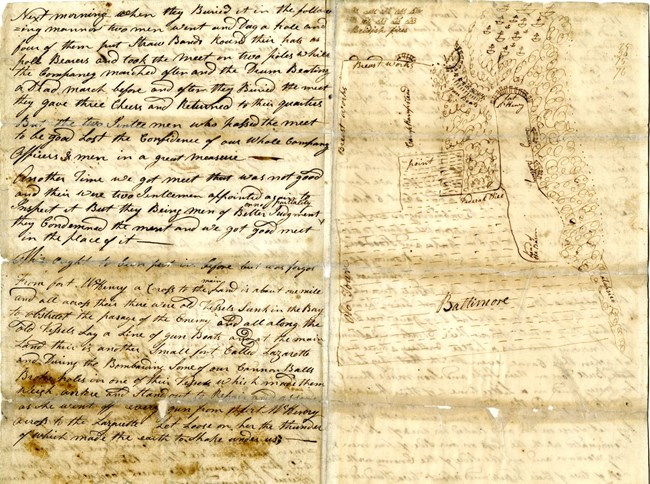 Next morning when they Buried it in the follow
=ing mannor two men went and Dug a hole and
four of them put Straw Bands Round their hats as
polle Bearers and took the Meet on two poles while
the Company marched after and the Drum Beating
a Dead march before and after they Buried the meet
they gave three Cheers and Returned to their quarters
But the two Jentlemen who passed the meet
to be good Lost the Confidence of our Whole Company
Officers & men in a great measure
Another Time we got meet that was not good
and their were two Jentlemen appointed again to
Inspect it But they Being men of Better Judgment
they Condemned the meat and we got good meet
in the place of it
This ought to been put in before but was forgot
From fort McHenry a Cross to the main Land is about one mile
and all across their there were old Vessels Sunk in the Bay
to obstruct the pasage of the Enemy and all along the
Old Vessels Lay a Line of gun Boats and at the main
Land their is another Small fort Called Lazarotto
and During the Bombarding Some of our Cannon Balls
holes in one of their Vessels which made them
and Stand out to Repair and as soon
as she went off every gun from fort McHenry
across to the Lazarotto Let Loose on her the thunder
of which made the earth to Shake under us
British fleet
Breast work
Breast works
Camp
point
Federal Hill
Old Town
Baltimore